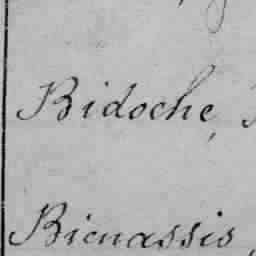 Bidoche,
Bienassis,